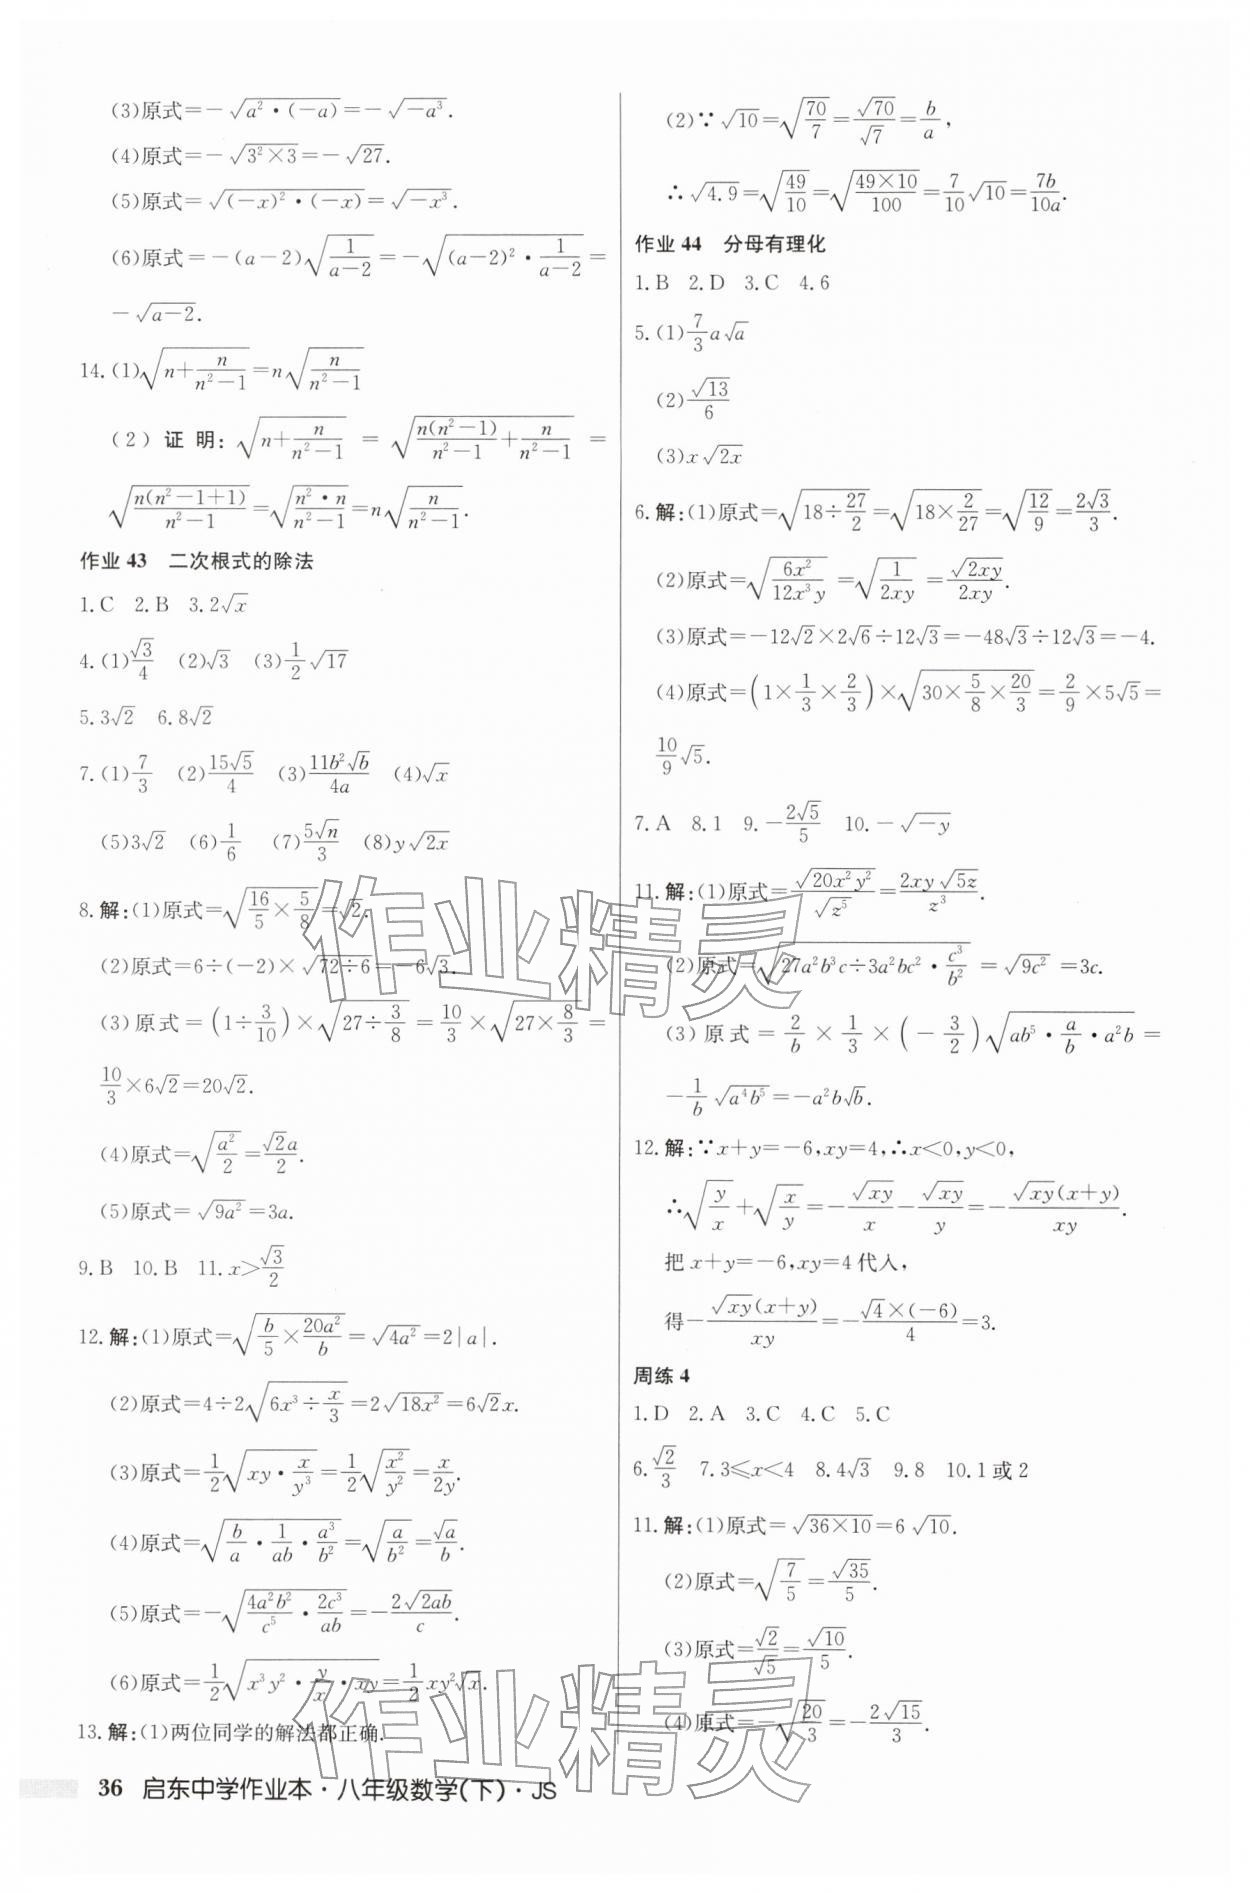 (3)原式=-√(a²·(-a))=-√(-a³).
(4)原式=-√(3²×3)=-√27.
(5)原式=√((-x)²·(-x))=√(-x³).
(6)原式=-(a-2)√(1/(a-2))=-√((a-2)²·1/(a-2))=
-√(a-2).
14.(1)√(n+n/(n²-1))=n√(n/(n²-1))
(2)证明:√(n+n/(n²-1))=√(n(n²-1)/(n²-1)+n/(n²-1))=
√(n(n²-1+1)/(n²-1))=√(n²·n/(n²-1))=n√(n/(n²-1)).
作业 43 二次根式的除法
1.C 2.B 3.2√x
4.(1)√3/4 (2)√3 (3)1/2√17
5.3√2 6.8√2
7.(1)7/3 (2)15√5/4 (3)11b²√b/4a (4)√x
(5)3√2 (6)1/6 (7)5√n/3 (8)y√(2x)
8.解:(1)原式=√(16/5×5/8)=√2.
(2)原式=6÷(-2)×√(72÷6)=-6√3.
(3)原式=(1÷3/10)×√(27÷3/8)=10/3×√(27×8/3)=
10/3×6√2=20√2.
(4)原式=√(a²/2)=√2a/2.
(5)原式=√(9a²)=3a.
9.B 10.B 11.x>√3/2
12.解:(1)原式=√(b/5×20a²/b)=√(4a²)=2|a|.
(2)原式=4÷2√(6x³÷x/3)=2√(18x²)=6√2x.
(3)原式=1/2√(xy·x/y³)=1/2√(x²/y²)=x/2y.
(4)原式=√(b/a·1/ab·a³/b²)=√(a/b²)=√a/b.
(5)原式=-√(4a²b²/c⁵·2c³/ab)=-2√(2ab)/c.
(6)原式=1/2√(x³y²·y/x·xy)=1/2xy²√x.
13.解:(1)两位同学的解法都正确.
(2)∵√10=√(70/7)=√70/√7=b/a,
∴√4.9=√(49/10)=√(49×10/100)=7/10√10=7b/10a.
作业 44 分母有理化
1.B 2.D 3.C 4.6
5.(1)7/3a√a
(2)√13/6
(3)x√(2x)
6.解:(1)原式=√(18÷27/2)=√(18×2/27)=√(12/9)=2√3/3.
(2)原式=√(6x²/12x³y)=√(1/2xy)=√(2xy)/2xy.
(3)原式=-12√2×2√6÷12√3=-48√3÷12√3=-4.
(4)原式=(1×1/3×2/3)×√(30×5/8×20/3)=2/9×5√5=
10/9√5.
7.A 8.1 9.-2√5/5 10.-√(-y)
11.解:(1)原式=√(20x²y²)/√(z⁵)=2xy√(5z)/z³.
(2)原式=√(27a²b³c÷3a²bc²·c³/b²)=√(9c²)=3c.
(3)原式=2/b×1/3×(-3/2)√(ab⁵·a/b·a²b)=
-1/b√(a⁴b⁵)=-a²b√b.
12.解:∵x+y=-6,xy=4,∴x<0,y<0,
∴√(y/x)+√(x/y)=-√(xy)/x-√(xy)/y=-√(xy)(x+y)/xy.
把x+y=-6,xy=4代入,
得-√(xy)(x+y)/xy=-√4×(-6)/4=3.
周练 4
1.D 2.A 3.C 4.C 5.C
6.√2/3 7.3≤x<4 8.4√3 9.8 10.1或2
11.解:(1)原式=√(36×10)=6√10.
(2)原式=√(7/5)=√35/5.
(3)原式=√2/√5=√10/5.
(4)原式=-√(20/3)=-2√15/3.
作业精灵
作业精灵
36 启东中学作业本·八年级数学(下)·JS